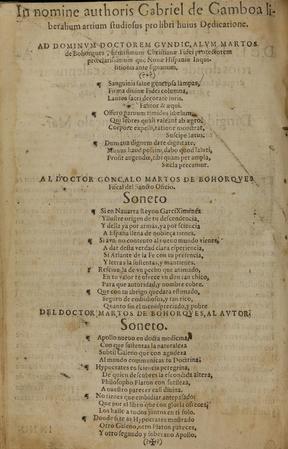 In nomine authoris Gabriel de Gamboa li-
beralium artium studiosus pro libri huius Dedicatione.
AD DOMINVM DOCTOREM GVNDIC, ALVM MARTOS
de Bohorques, Christianæ Fidei protectorem
præclarissimum que Nouæ Hispaniæ Inqui-
sitionis ante signanum.
Sanguinis satoe generosa lampas,
Firma diuinæ Fidei columna,
Lautos sacri decorate iuris.
Fautor & æqui.
Offero paruum timidus libellum,
Qui febres quas valeant ab ægro
Corpore expelli, ratione monstrat,
Suscipe lætus.
Dum tua dignem dare dignitate,
Munus haud possim, dabo quod
Prosit augendo, tibi quam per ampla,
Stella precamur.
AL DOCTOR GONCALO MARTOS DE BOHORQVES
Fiscal del Sancto Oficio.
Soneto
Si en Nauarra Reyno Garci Ximenez
Yllustre origen de tu descendencia,
Y desta ya por armas, ya por sciencia
A España llena de nobleza tienes.
Si aun no contento al nueuo mundo vienes
A dar desta verdad clara esperiencia,
Si Atlante de la Fe con tu presencia,
Y letras la sustentas, y mantienes.
Resciuo, la de vn pecho que animado,
En tu valor te ofrece vn don tan chico,
Para que autoridad, y nombre cobre.
Que con tu abrigo quedara estimado,
Seguro de embidiosos, y tan rico,
Quanto sin el menospreciado, y pobre
DEL DOCTOR MARTOS DE BOHORQVES, AL AVTOR
Soneto.
Apollo nueuo en docta medicina,
Con que sustentas la naturaleza
Subtil Galeno que con agudeza
Al mundo communicas tu Doctrina.
Hypocrates en sciencia peregrina,
De quien descubres la escondida alteza,
Philosopho Platon con sutileza,
A nuestro parecer casi diuina.
No tienes que embidiar antepassados
Que por el libro que con gloria ofreces,
Los halle a todos juntos en ti solo.
Donde si te as Hypocrates mostrado
Otro Galeno, otro Platon pareces,
Y otro segundo y soberano Apollo.